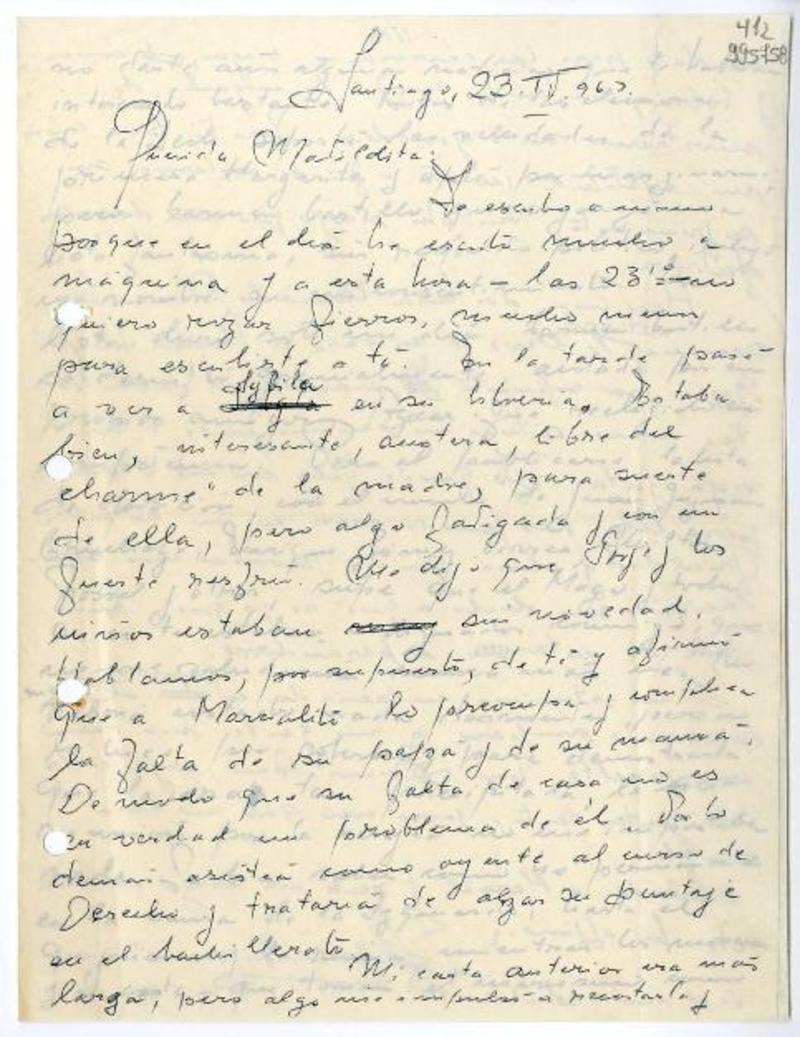 412
995758
Santiago, 23.IV.967.
Querida Matildita:
Te escribo a mano
porque en el día he escrito mucho a
máquina y a esta hora – las 23 – no
quiero rozar fierros, mucho menos
para escribirte a tí. En la tarde pasé
a ver a Sybila en su librería. Estaba
bien, interesante, austera, libre del
charme" de la madre, para suerte
de ella, pero algo fatigada y con un
fuerte resfrío. Me dijo que Jorge y los
niños estaban sin novedad.
Hablamos, por supuesto, de tí y afirmó
que a Marcialito lo preocupa y complica
la falta de su papá y de su mamá.
De modo que su falta de casa no es
en verdad un problema de él. Por lo
demás asistirá como oyente al curso de
Derecho y tratará de alzar su puntaje
en el bachillerato.
Mi carta anterior era más
larga, pero algo me impulsó a recortarla y